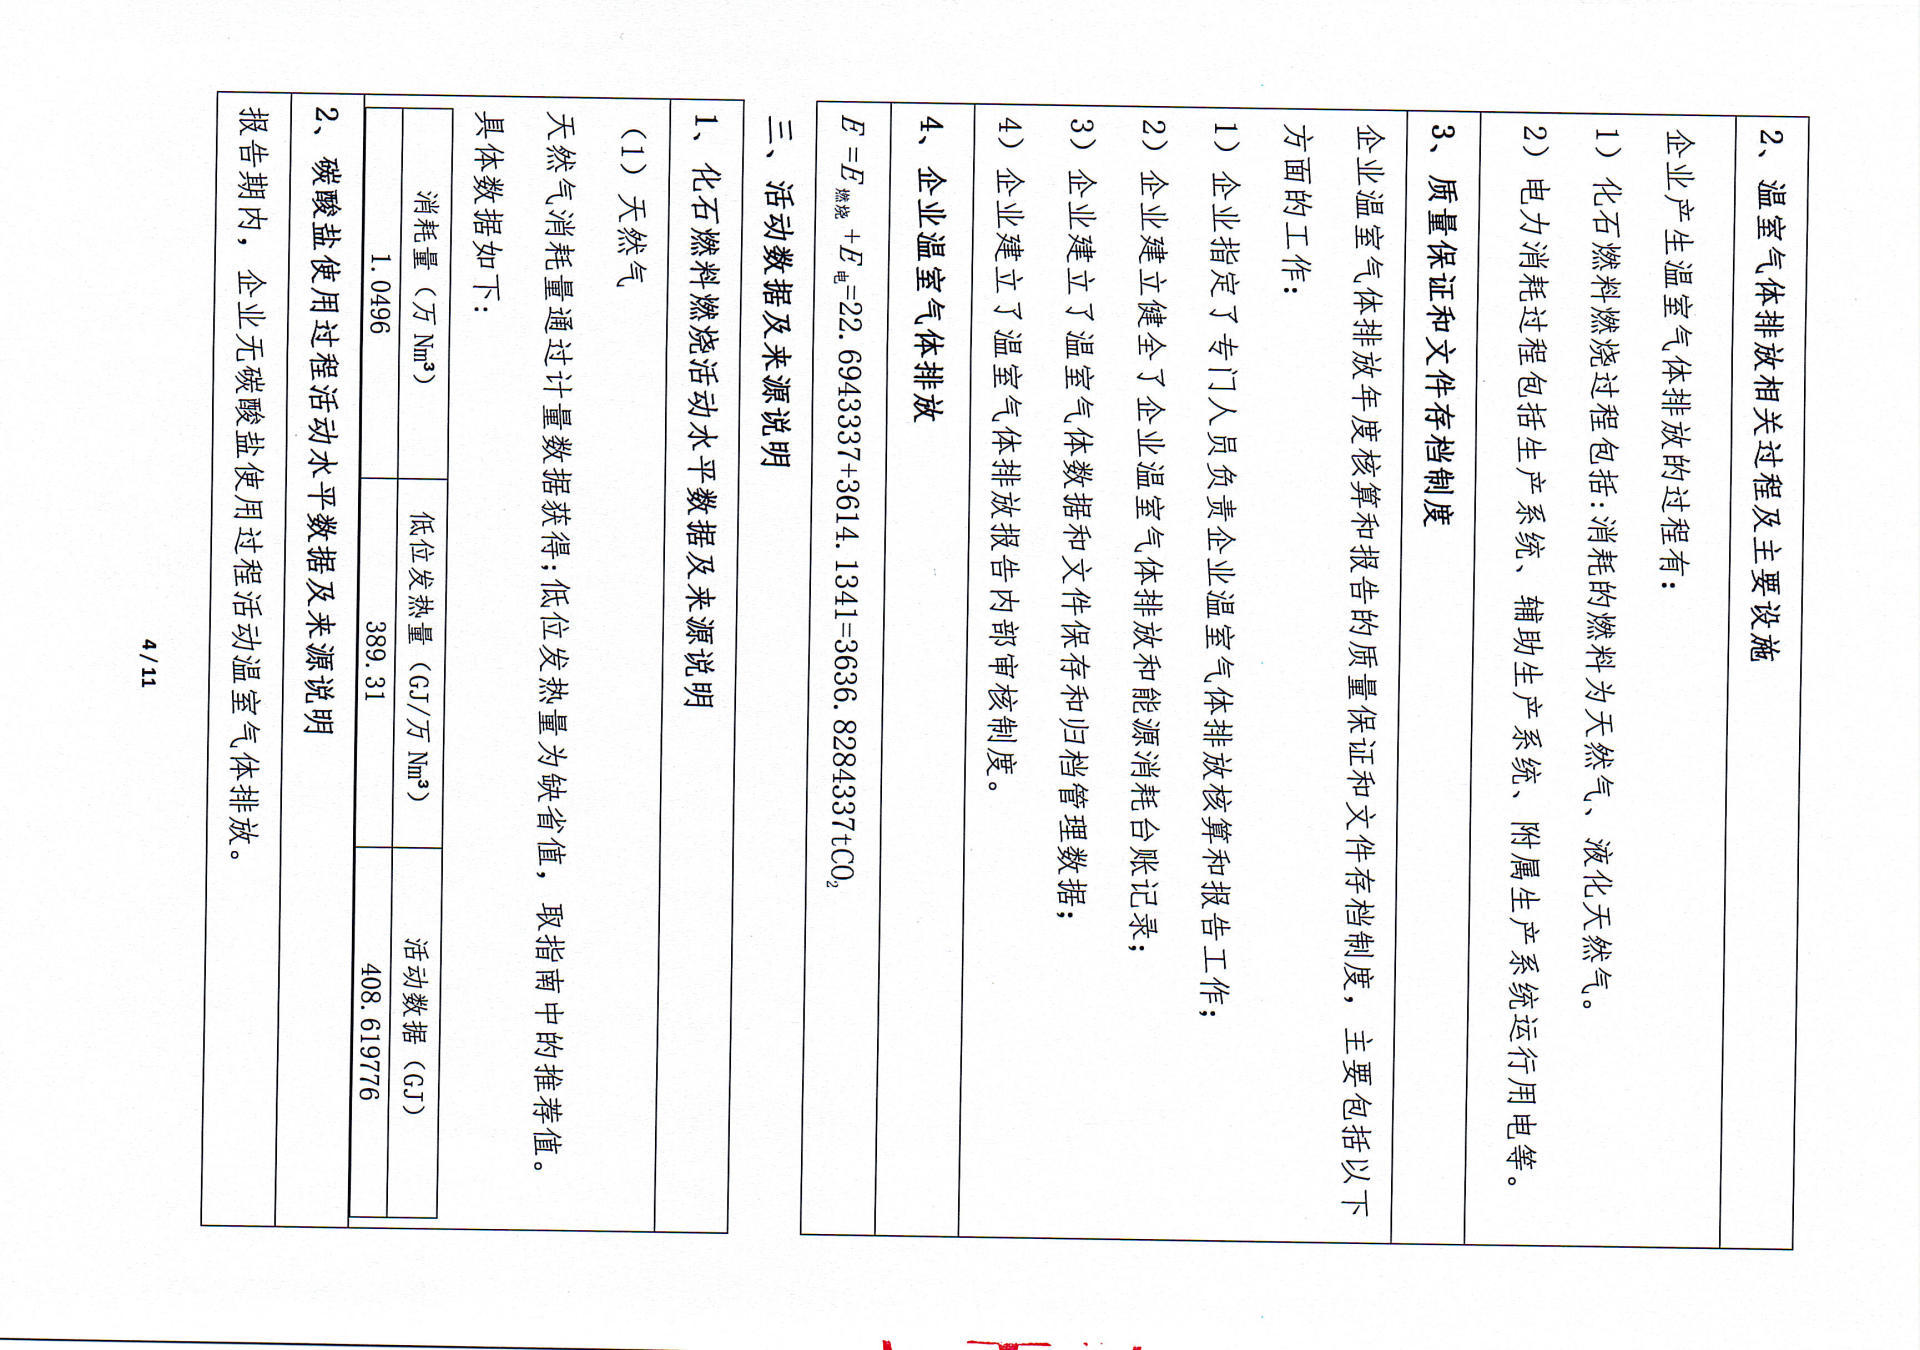 2、温室气体排放相关过程及主要设施
企业产生温室气体排放的过程有：
1）化石燃料燃烧过程包括:消耗的燃料为天然气、液化天然气。
2）电力消耗过程包括生产系统、辅助生产系统、附属生产系统运行用电等。
3、质量保证和文件存档制度
企业温室气体排放年度核算和报告的质量保证和文件存档制度，主要包括以下
方面的工作：
1）企业指定了专门人员负责企业温室气体排放核算和报告工作；
2）企业建立健全了企业温室气体排放和能源消耗台账记录；
3）企业建立了温室气体数据和文件保存和归档管理数据；
4）企业建立了温室气体排放报告内部审核制度。
4、企业温室气体排放
E=E燃烧+E电=22.6943337+3614.1341=3636.8284337tCO₂
三、活动数据及来源说明
1、化石燃料燃烧活动水平数据及来源说明
（1）天然气
天然气消耗量通过计量数据获得;低位发热量为缺省值，取指南中的推荐值。
具体数据如下：
消耗量（万Nm³） 低位发热量（GJ/万Nm³） 活动数据（GJ）
1.0496 389.31 408.619776
2、碳酸盐使用过程活动水平数据及来源说明
报告期内，企业无碳酸盐使用过程活动温室气体排放。
4/11